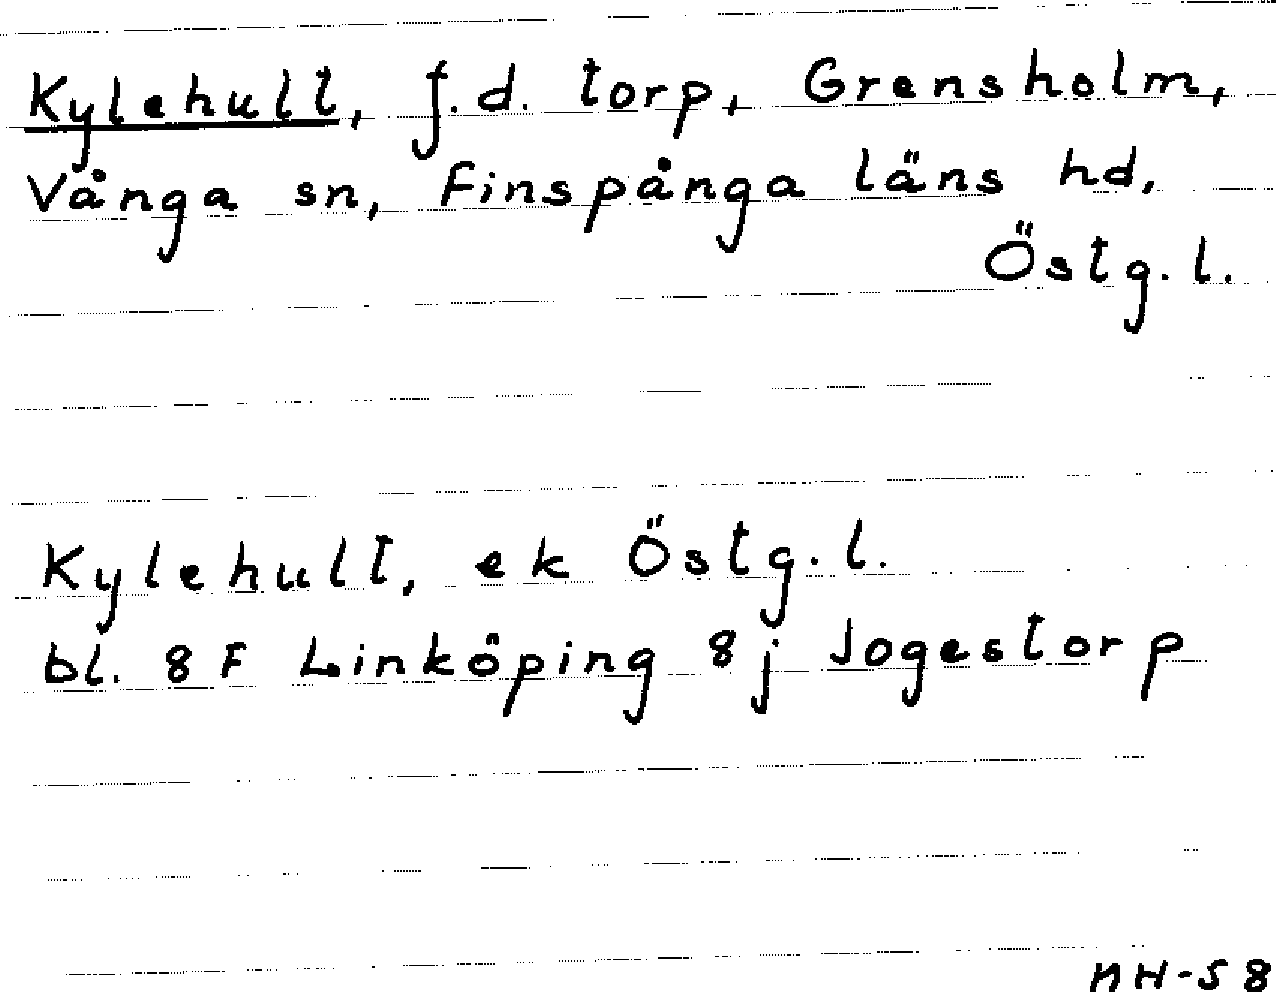 Kylehult, f.d. torp, Grensholm,
Vånga sn, Finspånga läns hd,
Östg.l.
Kylehult, ek Östg.l.
bl. 8 F Linköping 8j Jogestorp
NH-58